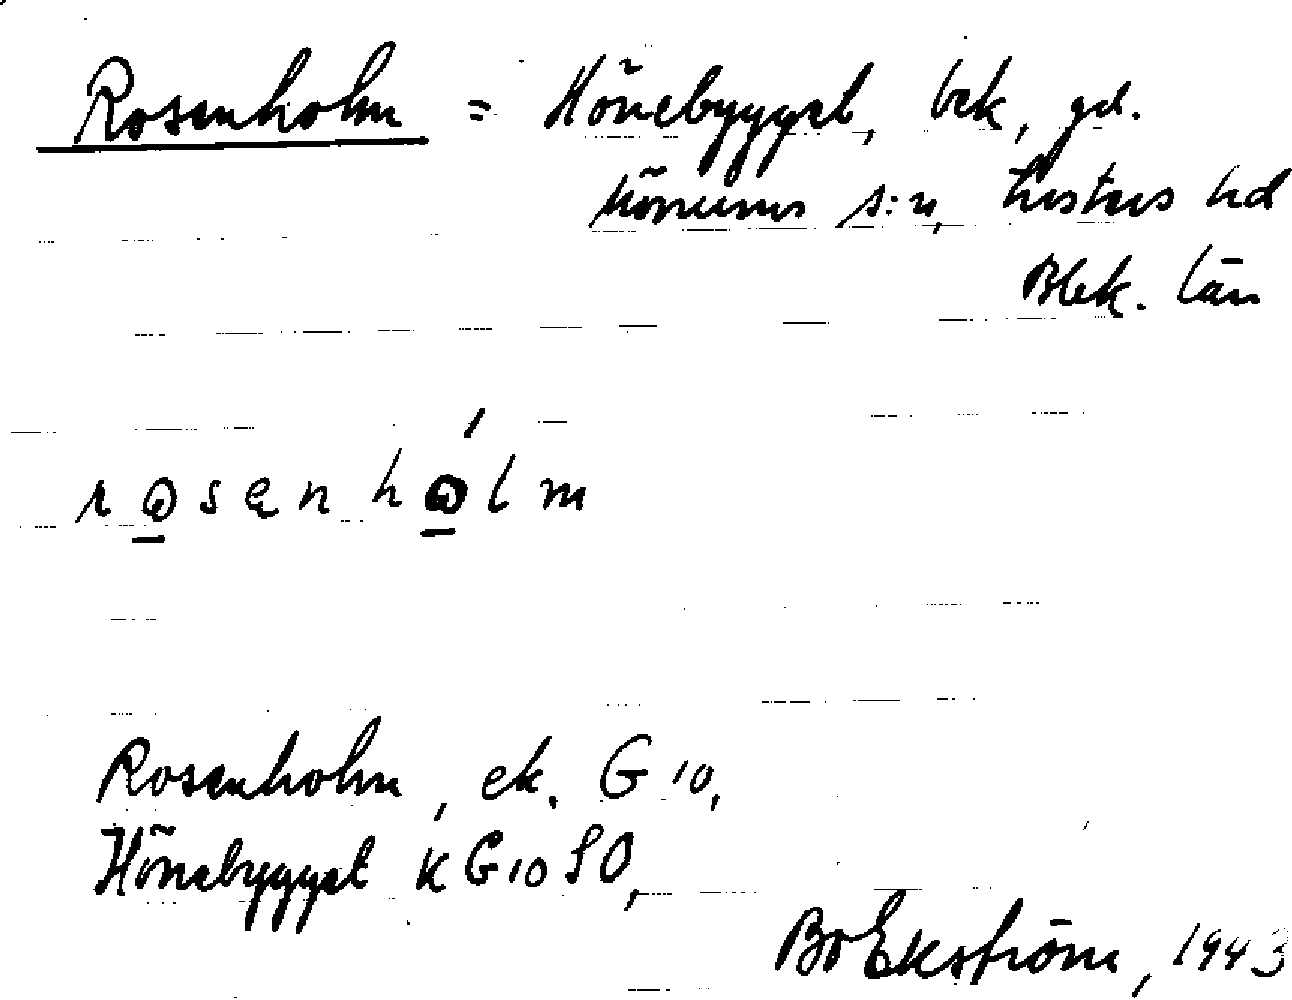 Rosenholm = Hönebygget, bek, gd.
Mörrums s:n, Listers hd
Blek. län
rosenholm
Rosenholm, ek. G 10,
Hönebygget k G10 SO,
Bo Ekström, 1943